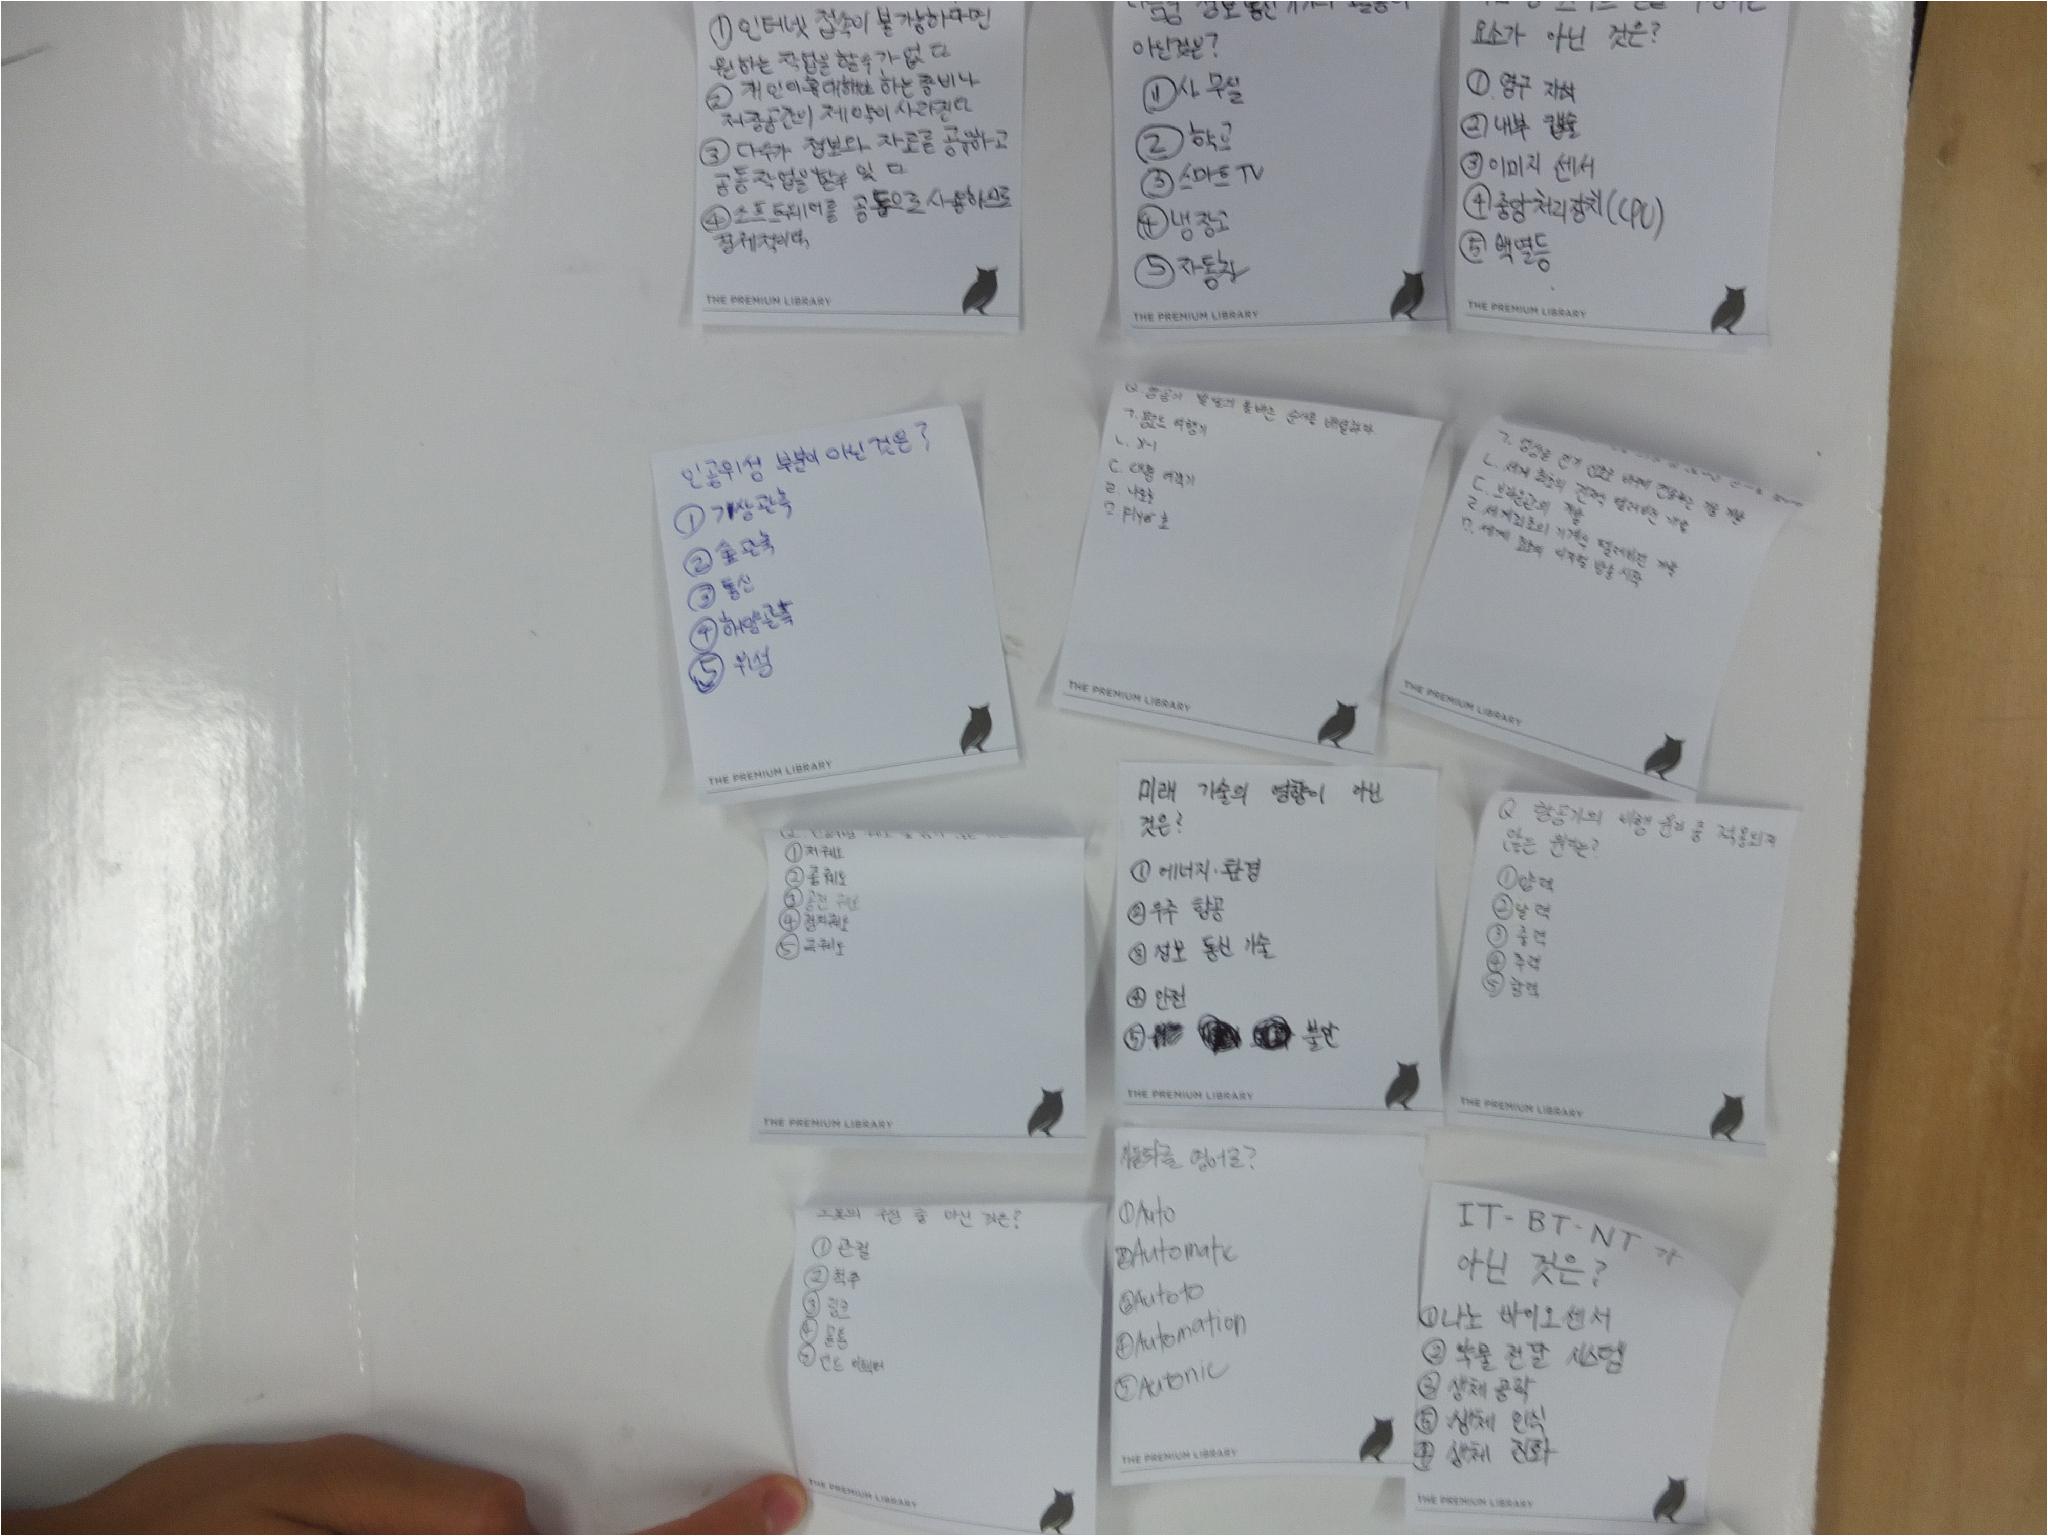 ① 인터넷 접속이 불가능하다면
원하는 작업을 할수가 없다
② 개인이 휴대해야 하는 장비나
저장공간의 제약이 사라진다
③ 다수가 정보와 자료를 공유하고
공동작업을 할수 있다
④ 소프트웨어를 공동으로 사용하므로
THE PREMIUM LIBRARY
정보통신
아닌것은?
① 사무실
② 학교
③ 스마트TV
④ 냉장고
⑤ 자동차
THE PREMIUM LIBRARY
요소가 아닌 것은?
① 영구 자석
② 내부 캡슐
③ 이미지 센서
④ 중앙처리장치(CPU)
⑤ 백열등
THE PREMIUM LIBRARY
인공위성 부분이 아닌 것은?
① 기상관측
② 숲관측
③ 통신
④ 해양관측
⑤ 위성
THE PREMIUM LIBRARY
순서를
ㄱ. 여행기
ㄴ. X-1
ㄷ. 대형 여객기
ㄹ. 나로호
ㅁ. Flyer 호
THE PREMIUM LIBRARY
ㄱ. 영상을 전기 신호로 바꾸어 전송하는 기술 개발
ㄴ. 세계 최초의 전자식 텔레비전 개발
ㄷ. 브라운관의 개발
ㄹ. 세계최초의 기계식 텔레비전 개발
ㅁ. 세계 최초의 디지털 방송 시작
THE PREMIUM LIBRARY
① 저궤도
② 중궤도
③ 공전 궤도
④ 정지궤도
⑤ 극궤도
THE PREMIUM LIBRARY
미래 기술의 영향이 아닌
것은?
① 에너지·환경
② 우주 항공
③ 정보 통신 기술
④ 안전
⑤ 불안
THE PREMIUM LIBRARY
Q 항공기의 비행 원리 중 적용되지
않는 원리는?
① 양력
② 날력
③ 중력
④ 추력
⑤ 항력
THE PREMIUM LIBRARY
로봇의 구성 중 아닌 것은?
① 관절
② 척추
③ 링크
④ 몸통
⑤ 엔드 이펙터
THE PREMIUM LIBRARY
자동화를 영어로?
① Auto
② Automatc
③ Autoto
④ Automation
⑤ Autonic
THE PREMIUM LIBRARY
IT-BT-NT가
아닌 것은?
① 나노 바이오센서
② 약물 전달 시스템
③ 생체공학
⑤ 생체 인식
④ 생체 진화
THE PREMIUM LIBRARY